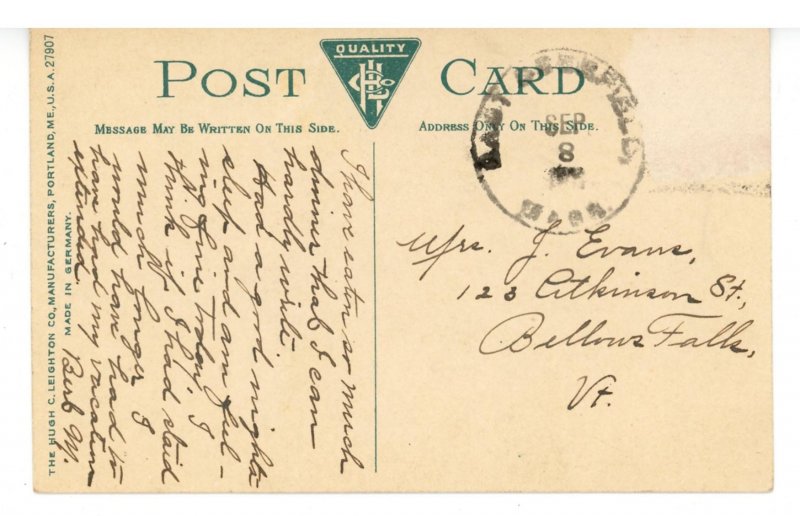 POST CARD
QUALITY
HLCO
MESSAGE MAY BE WRITTEN ON THIS SIDE.
ADDRESS ONLY ON THIS SIDE.
EAST DEERFIELD
SEP
8
MASS.
I have eaten so much
dinner that I can
hardly write
Had a good night's
sleep and am feel-
ing fine today. I
think if I had staid
much longer I
would have had to
have had my vacation
extended.
Bert M.
Mrs. J. Evans,
123 Atkinson St.,
Bellows Falls,
Vt.
THE HUGH C. LEIGHTON CO., MANUFACTURERS, PORTLAND, ME., U.S.A. 27907
MADE IN GERMANY.